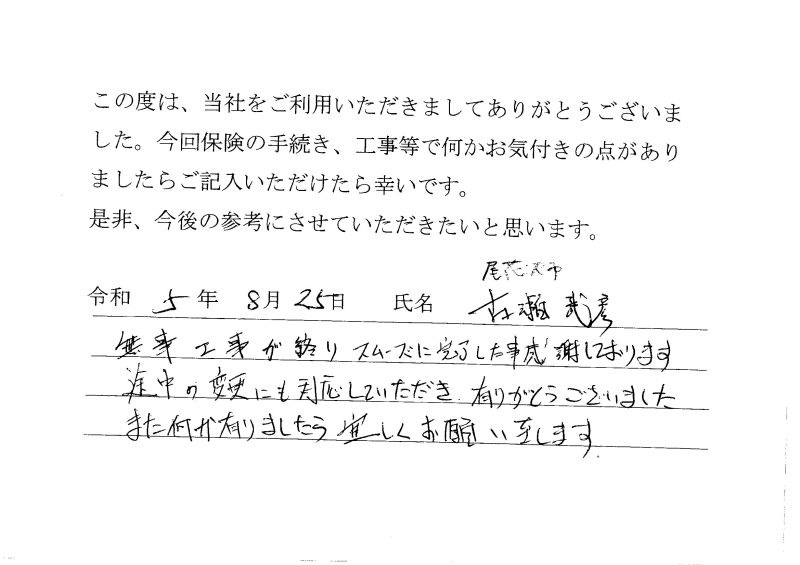 この度は、当社をご利用いただきましてありがとうございま
した。今回保険の手続き、工事等で何かお気付きの点があり
ましたらご記入いただけたら幸いです。
是非、今後の参考にさせていただきたいと思います。
尾花沢市
令和 5 年 8月 25日 氏名
無事工事が終りスムーズに完了した事感謝しております
途中の変更にも対応していただき、有りがとうございました
また何か有りましたら宜しくお願い致します.